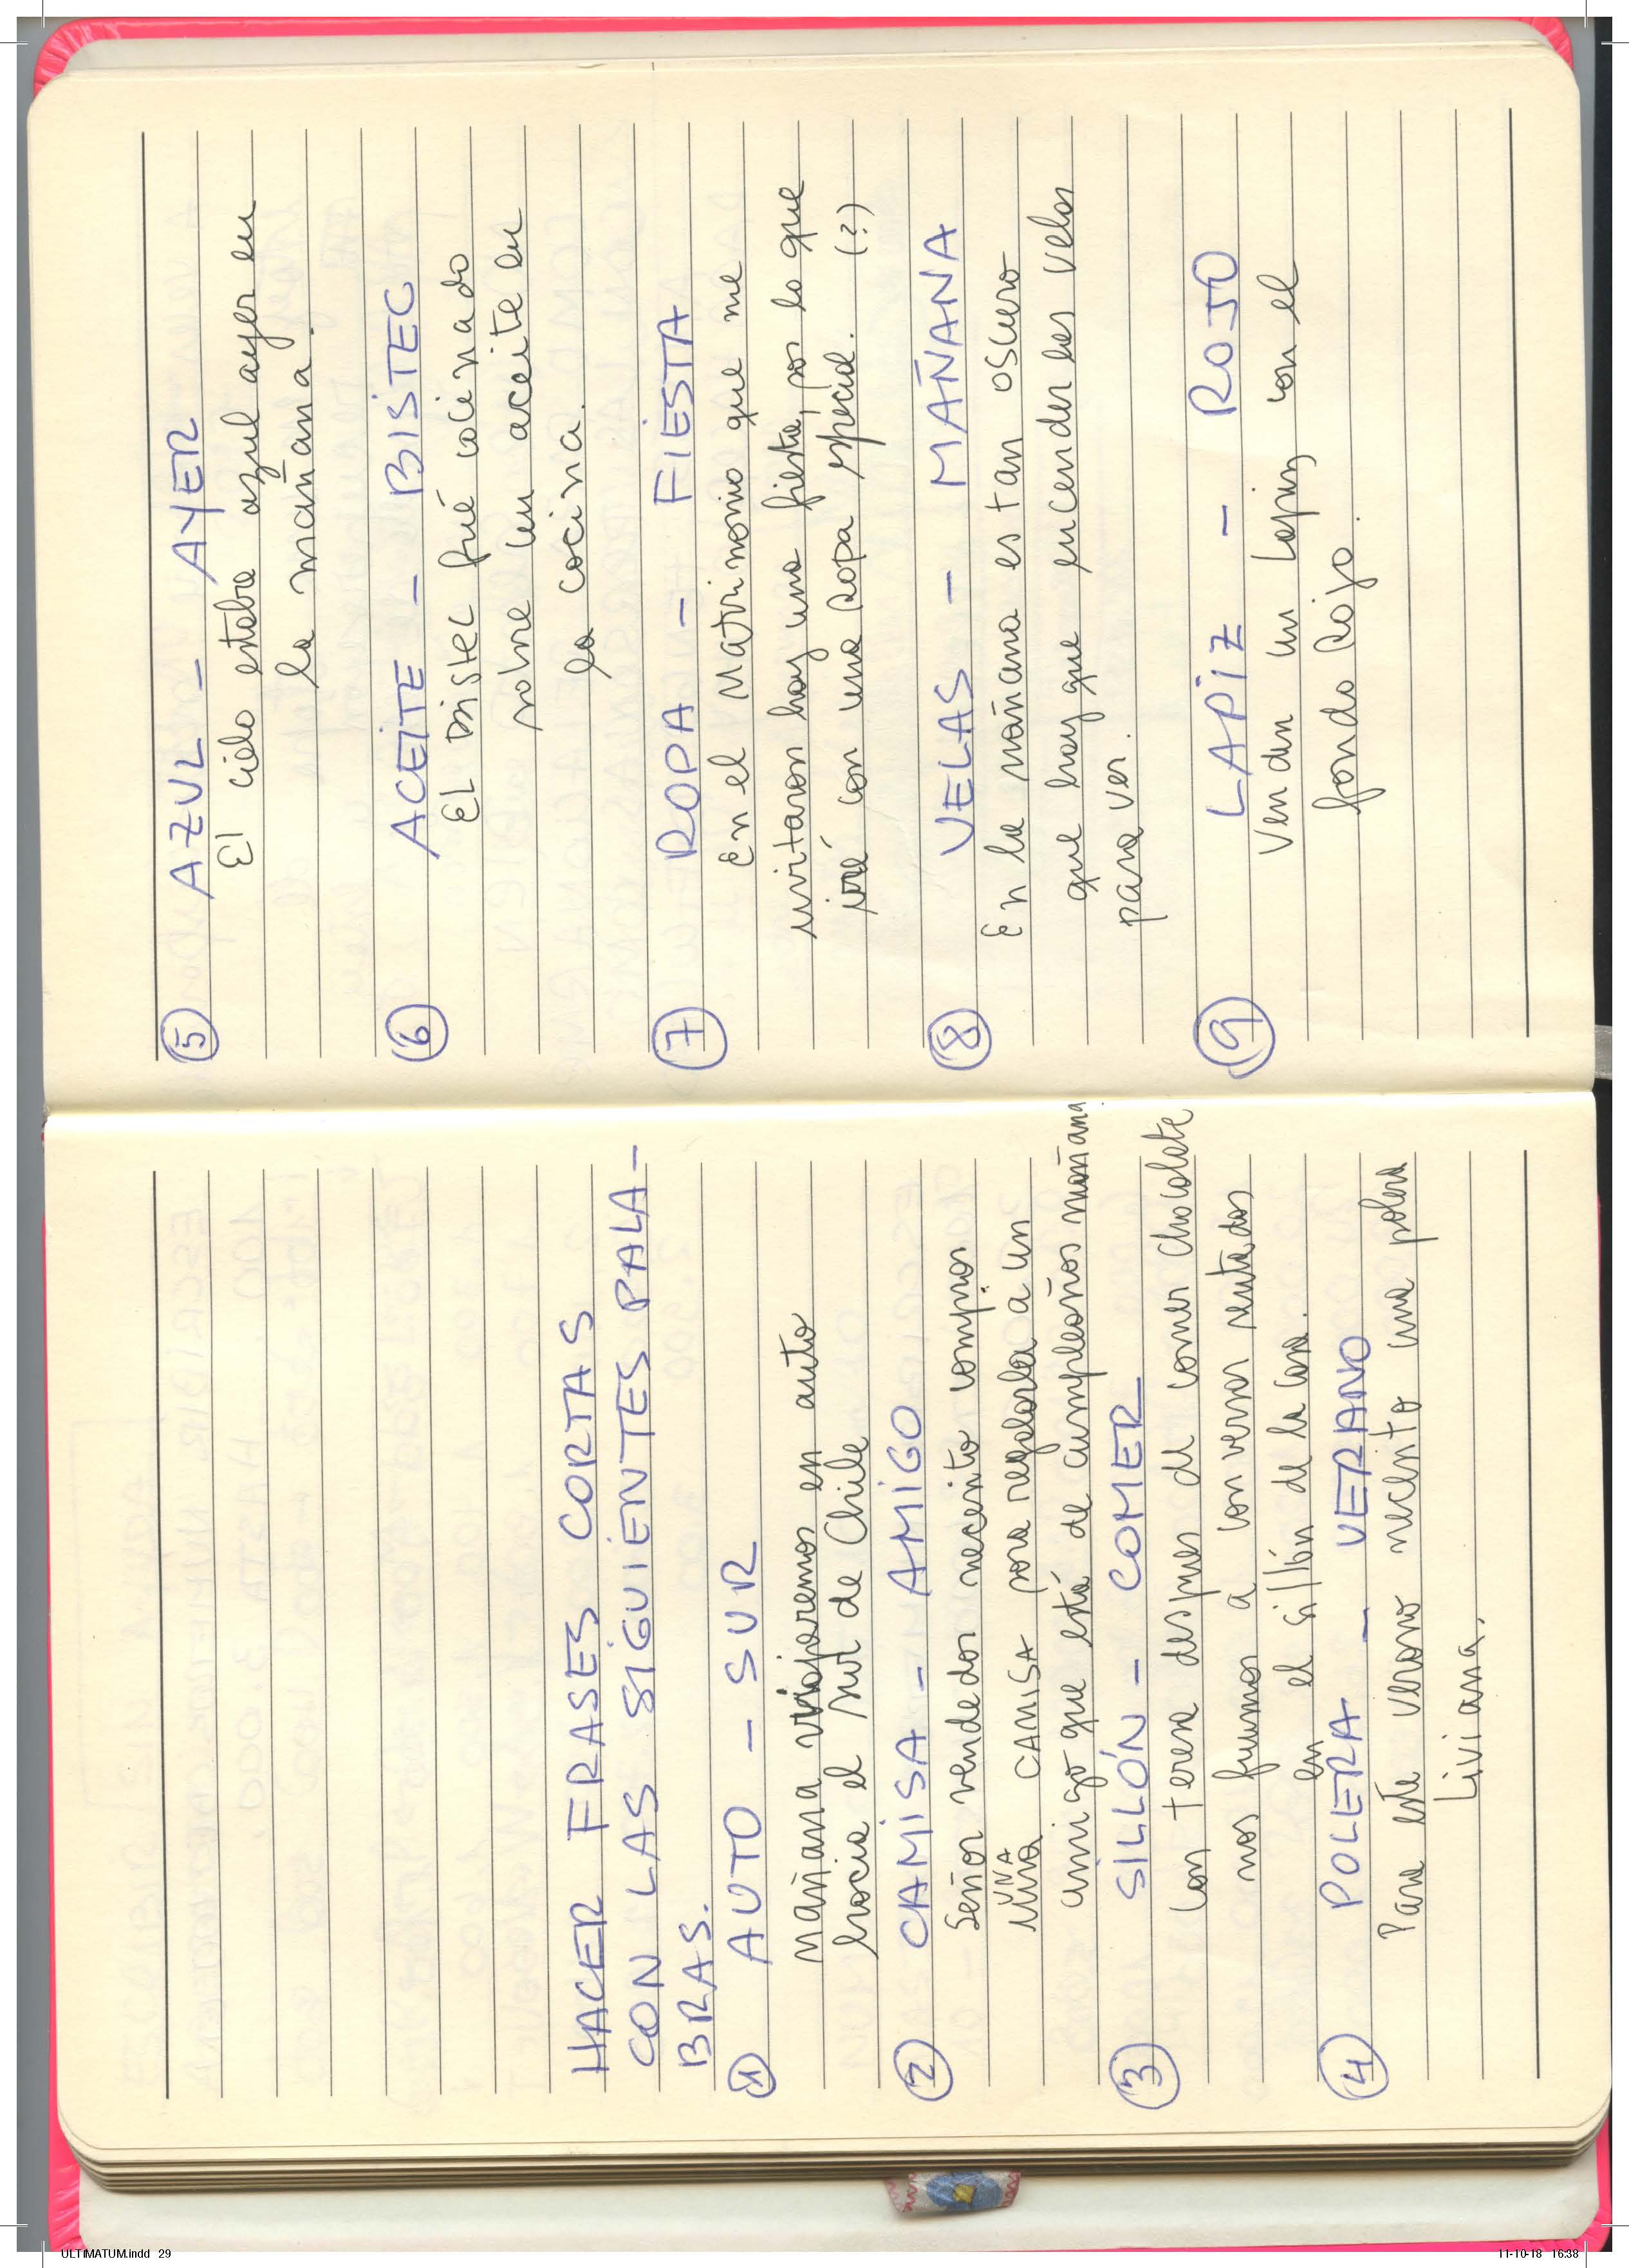 HACER FRASES CORTAS
CON LAS SIGUIENTES PALA-
BRAS.
1 AUTO - SUR
Mañana viajaremos en auto
hacia el sur de Chile
2 CAMISA - AMIGO
Señor vendedor necesito comprar
UNA
una CAMISA para regalarla a un
amigo que está de cumpleaños mañana
3 SILLÓN - COMER
Con teresa despues de comer chocolate
nos fuimos a conversar sentados
en el sillón de la casa.
4 POLERA - VERANO
Para este verano necesito una polera
Liviana.
5 AZUL - AYER
El cielo estaba azul ayer en
la mañana.
6 ACEITE - BISTEC
EL bistec fué cocinado
sobre un aceite en
la cocina.
7 ROPA - FIESTA
En el Matrimonio que me
invitaron hay una fiesta, por lo que
iré con una Ropa special. (?)
8 VELAS - MAÑANA
En la mañana es tan oscuro
que hay que encender las velas
para ver.
9 LAPIZ - ROJO
Venden un Lapiz con el
fondo Rojo.
ULTIMATUM.indd 29
11-10-18 16:38